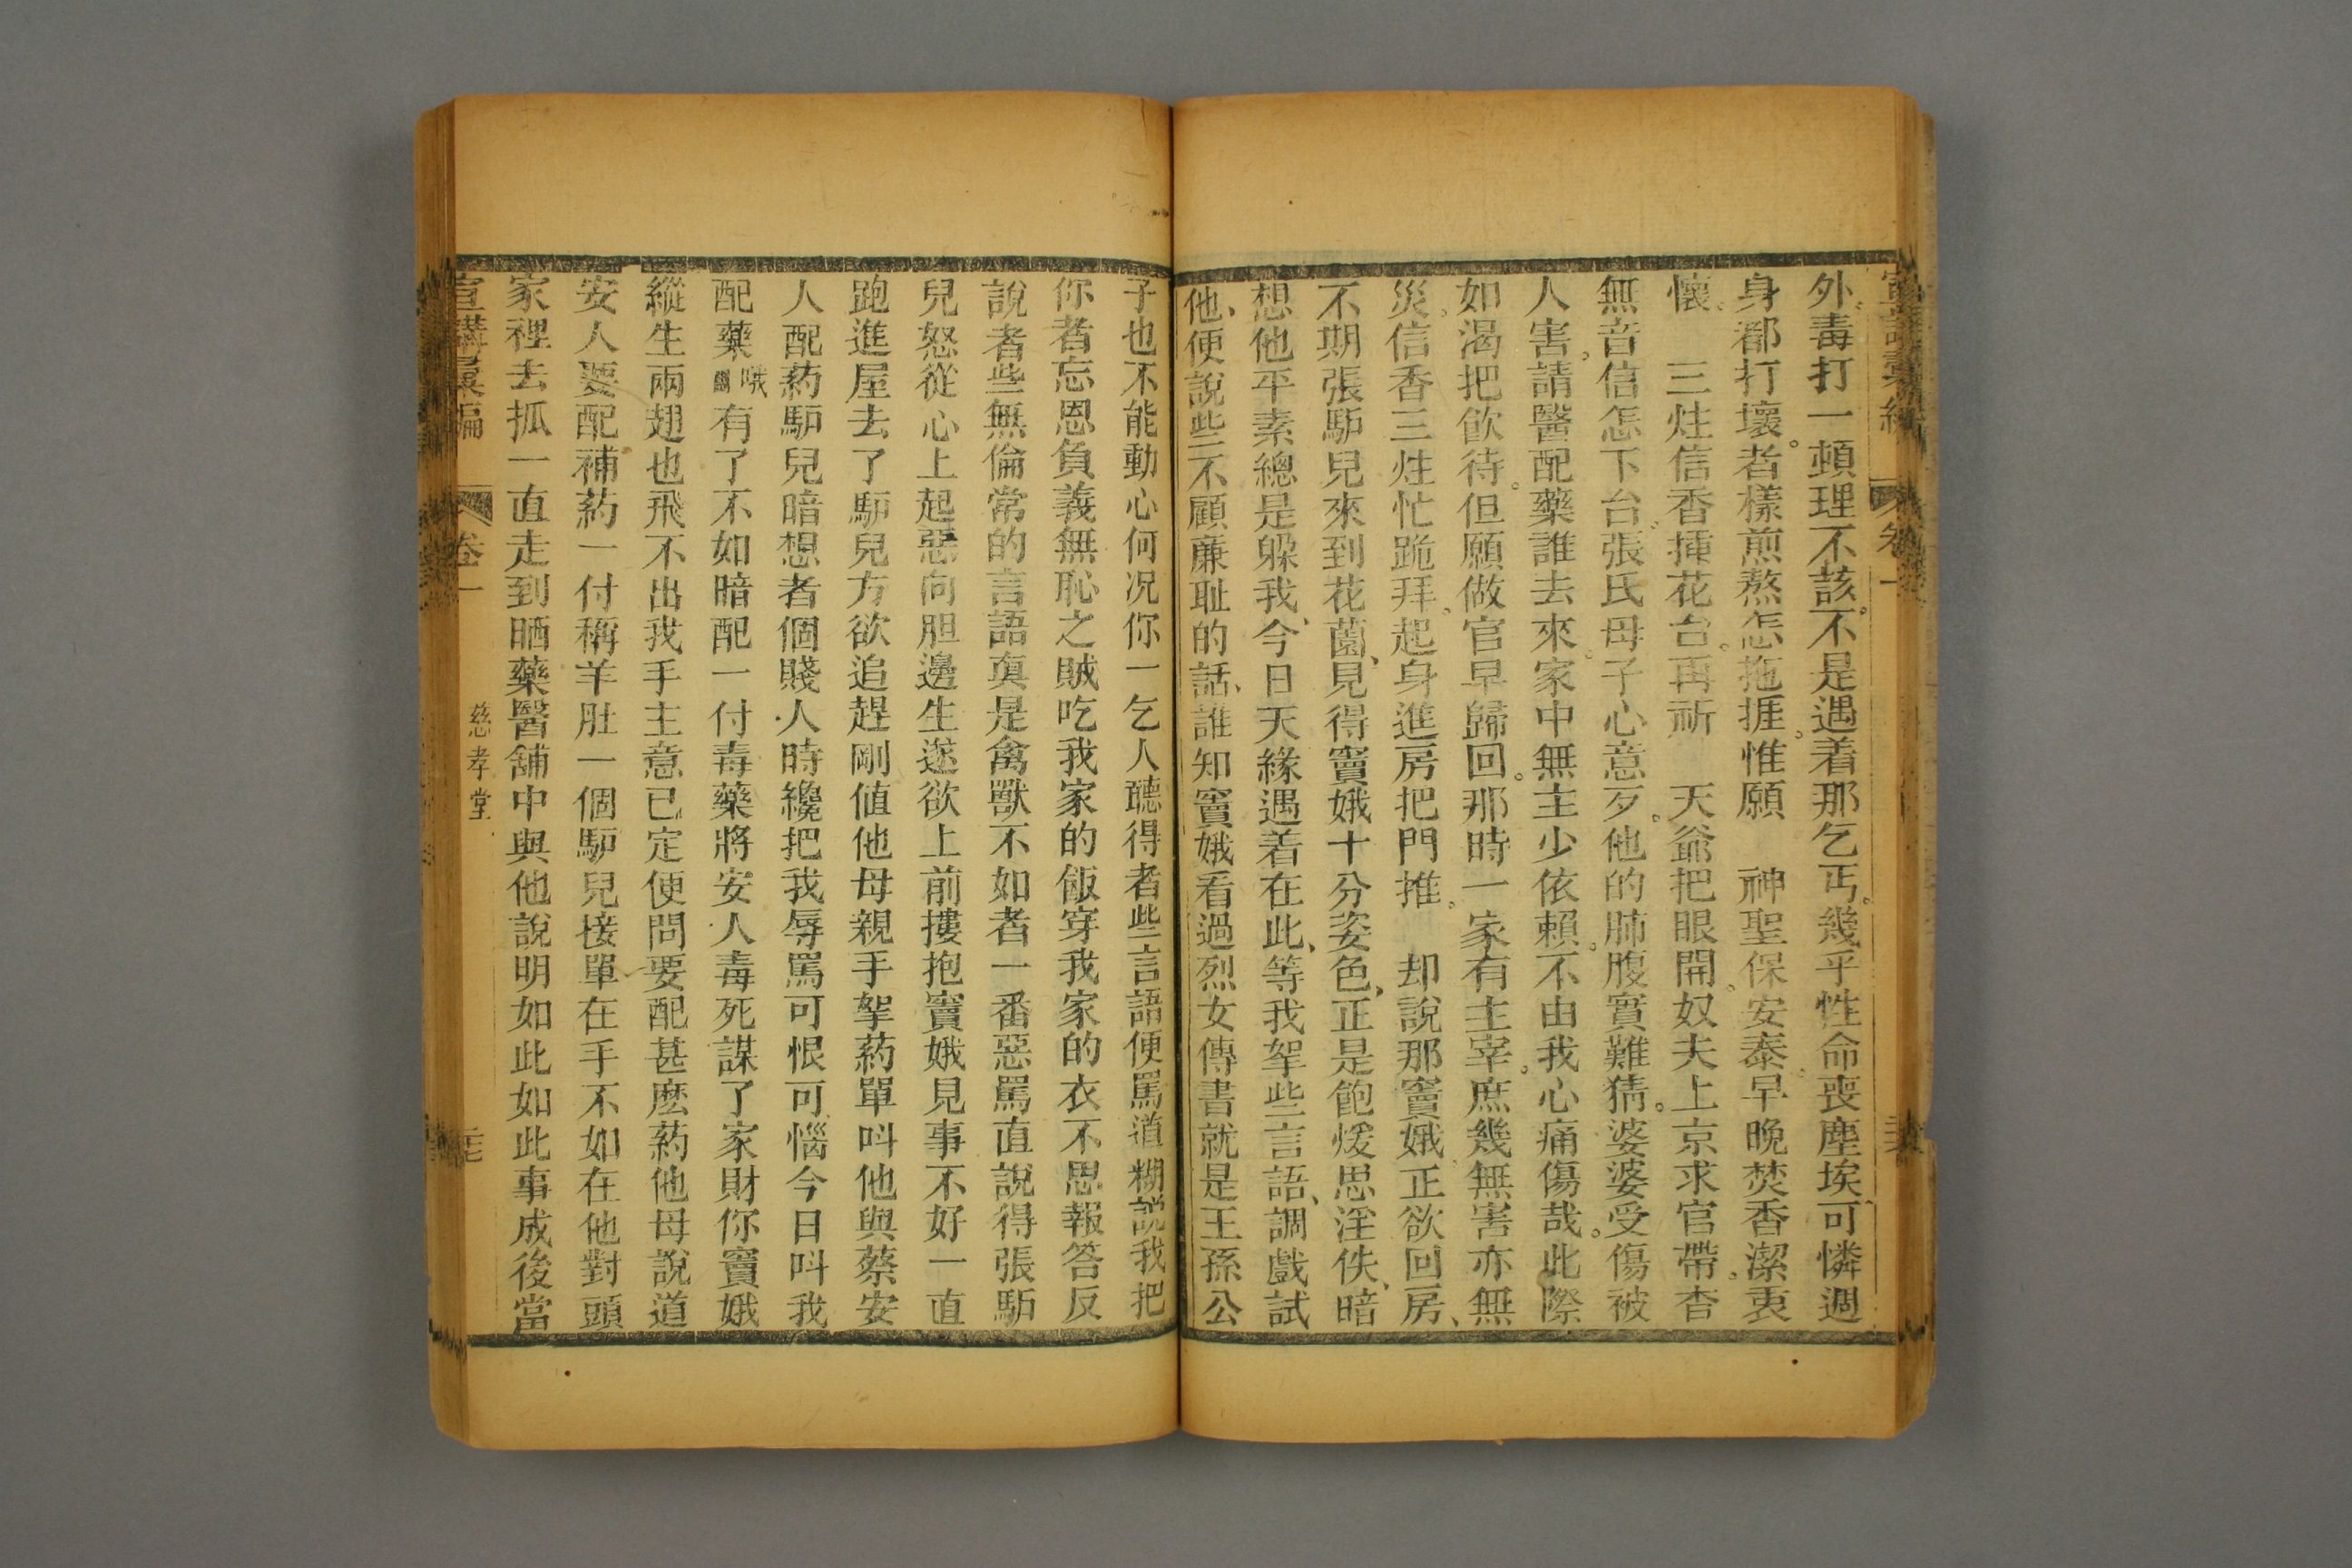 外毒打一頓理不該不是遇着那乞丐幾乎性命喪塵埃可憐週
身都打壞者樣煎熬怎拖捱惟願 神聖保安泰早晚焚香潔衷
懷 三炷信香揷花台再祈 天爺把眼開奴夫上京求官帶杳
無音信怎下台張氏母子心意歹他的肺腹實難猜婆婆受傷被
人害請醫配藥誰去來家中無主少依賴不由我心痛傷哉此際
如渴把飲待但願做官早歸回那時一家有主宰庶幾無害亦無
災信香三炷忙跪拜起身進房把門推 却說那竇娥正欲回房、
不期張馿兒來到花薗、見得竇娥十分姿色、正是飽煖思淫佚、暗
想他平素總是躱我、今日天緣遇着在此、等我拏些言語、調戲試
他、便說些不顧廉耻的話、誰知竇娥看過烈女傳書就是王孫公
子也不能動心何况你一乞人聽得者些言語便罵道糊說我把
你者忘恩負義無恥之賊吃我家的飯穿我家的衣不思報答反
說者些無倫常的言語眞是禽獸不如者一番惡罵直說得張馿
兒怒從心上起惡向胆邊生遂欲上前摟抱竇娥見事不好一直
跑進屋去了馿兒方欲追趕剛値他母親手拏葯單呌他與蔡安
人配葯馿兒暗想者個賤人時纔把我辱罵可恨可惱今日呌我
配藥哦有了不如暗配一付毒藥將安人毒死謀了家財你竇娥
縱生兩翅也飛不出我手主意已定便問要配甚麽葯他母說道
安人要配補葯一付稱羊肚一個馿兒接單在手不如在他對頭
家裡去抓一直走到晒藥醫舖中與他說明如此如此事成後當
宣講彙編 卷一 慈孝堂